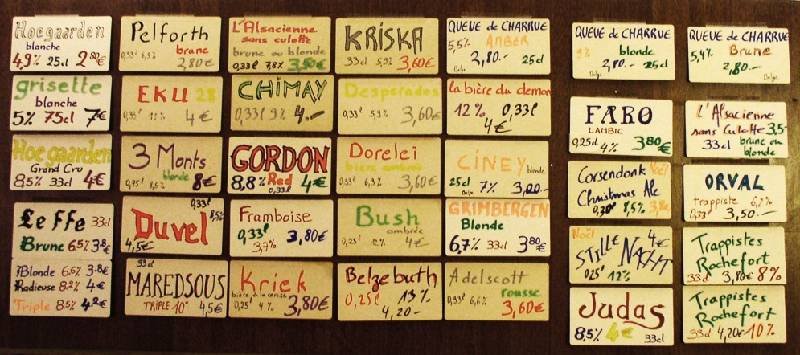 Hoegaarden
blanche
4,9% 25cl 2,80€
Pelforth
brune
0,33l 2,80€
L'Alsacienne
sans culotte
brune ou blonde
0,33l 7,8% 3,50€
KRISKA
33cl 5,9% 3,60€
QUEUE DE CHARRUE
5,5% AMBER
2,80.- 25cl
QUEUE DE CHARRUE
blonde
2,80.- 25cl
QUEUE DE CHARRUE
5,4% Brune
2,80.-
grisette
blanche
5% 75cl 7€
EKU 28
4€
CHIMAY
0,33l 9% 4.-
Desperados
3,60€
la bière du demon
12% 0,33l
4€
FARO
LAMBIC
0,25l 4% 3,80€
L'Alsacienne
sans Culotte 3,5-
33cl brune ou
blonde
Hoegaarden
Grand Cru
8,5% 33cl 4€
3 Monts
blonde 8€
GORDON
8,8% Red 4€
0,33l
Dorelei
bière ambrée
0,33l 6,5% 3,60€
CINEY blonde
25cl 7% 3,00.-
Corsendonk Noël
Christmas Ale
ORVAL
Trappiste
0,33l 3,50.-
Leffe 33cl
Brune 6,5% 3,8€
0,33l
Duvel
4,5€
Framboise
0,33l
3,80€
Bush
ambrée
4€
GRIMBERGEN
Blonde
6,7% 33cl 3,80€
Noël 4€
STILLE NACHT
12%
Trappistes
Rochefort
33cl 8%
Blonde 6,6% 3,8€
Radieuse 8,2% 4€
Triple 8,5% 4,2€
33cl
MAREDSOUS
TRIPLE 10° 4,5€
Kriek
bière à la cerise
0,25l 4% 3,80€
Belzebuth
0,25l 13%
4,20.-
Adelscott
rousse
3,60€
Judas
8,5% 4€ 33cl
Trappistes
Rochefort
33cl 4,20€ 10%